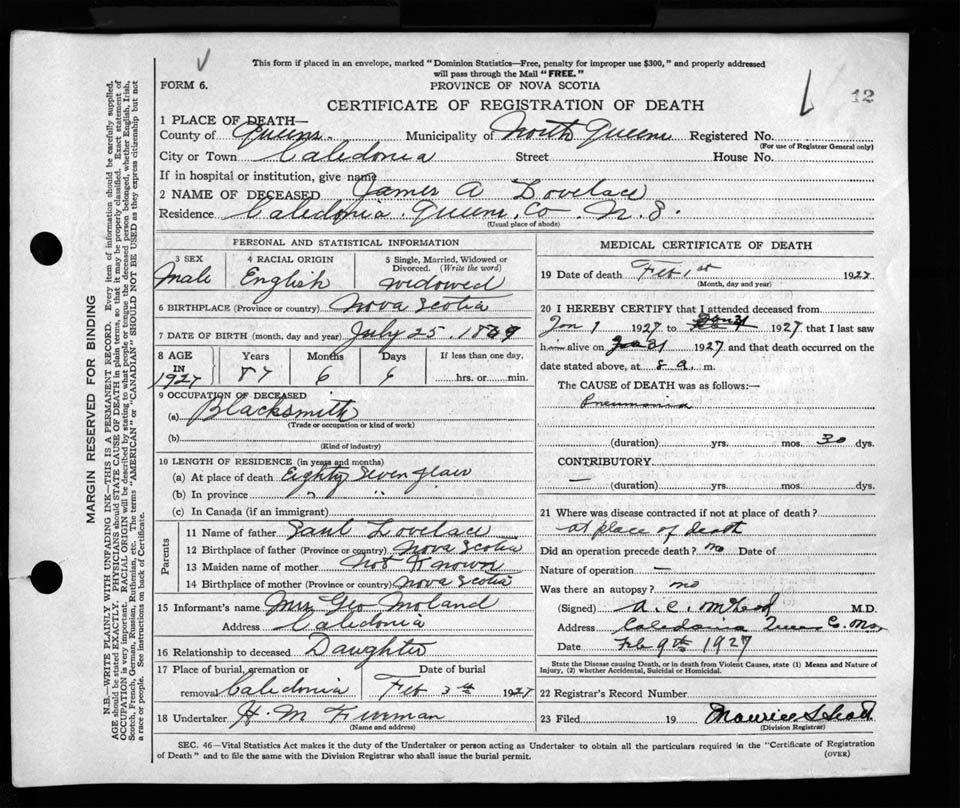 This form if placed in an envelope, marked "Dominion Statistics—Free, penalty for improper use $300," and properly addressed
will pass through the Mail "FREE."
FORM 6.
PROVINCE OF NOVA SCOTIA
CERTIFICATE OF REGISTRATION OF DEATH
12
1 PLACE OF DEATH—
County of Queens Municipality of North Queens Registered No.
(For use of Registrar General only)
City or Town Caledonia Street House No.
If in hospital or institution, give name
2 NAME OF DECEASED James A Lovelace
Residence Caledonia Queens Co N.S.
(Usual place of abode)
PERSONAL AND STATISTICAL INFORMATION
3 SEX Male
4 RACIAL ORIGIN English
5 Single, Married, Widowed or Divorced. (Write the word) widowed
6 BIRTHPLACE (Province or country) Nova Scotia
7 DATE OF BIRTH (month, day and year) July 25. 1839
8 AGE IN 1927
Years 87
Months 6
Days 6
If less than one day, hrs. or min.
9 OCCUPATION OF DECEASED
(a) Blacksmith
(Trade or occupation or kind of work)
(b)
(Kind of industry)
10 LENGTH OF RESIDENCE (in years and months)
(a) At place of death Eighty Seven years
(b) In province " "
(c) In Canada (if an immigrant)
Parents
11 Name of father Paul Lovelace
12 Birthplace of father (Province or country) Nova Scotia
13 Maiden name of mother Not Known
14 Birthplace of mother (Province or country) Nova Scotia
15 Informant's name Mrs Geo Moland
Address Caledonia
16 Relationship to deceased Daughter
17 Place of burial, cremation or removal Caledonia
Date of burial Feb 3rd 1927
18 Undertaker H. M.
(Name and address)
MEDICAL CERTIFICATE OF DEATH
19 Date of death Feb 1st 1927
(Month, day and year)
20 I HEREBY CERTIFY that I attended deceased from
Jan 1 1927 to Jan 31 1927 that I last saw
him alive on Jan 31 1927 and that death occurred on the
date stated above, at 8 a. m.
The CAUSE of DEATH was as follows:—
Pneumonia
(duration) yrs. mos. 30 dys.
CONTRIBUTORY
— (duration) yrs. mos. dys.
21 Where was disease contracted if not at place of death?
at place of death
Did an operation precede death? no Date of
Nature of operation —
Was there an autopsy? no
(Signed) A. C. M.D.
Address Caledonia Queens Co. N.S.
Date Feb 9th 1927
State the Disease causing Death, or in death from Violent Causes, state (1) Means and Nature of
Injury, (2) whether Accidental, Suicidal or Homicidal.
22 Registrar's Record Number
23 Filed 19 Maurice S Scott
(Division Registrar)
SEC. 46—Vital Statistics Act makes it the duty of the Undertaker or person acting as Undertaker to obtain all the particulars required in the "Certificate of Registration
of Death" and to file the same with the Division Registrar who shall issue the burial permit.
(OVER)
MARGIN RESERVED FOR BINDING
N.B.—WRITE PLAINLY WITH UNFADING INK—THIS IS A PERMANENT RECORD. Every item of information should be carefully supplied.
AGE should be stated EXACTLY. PHYSICIANS should STATE CAUSE OF DEATH in plain terms, so that it may be properly classified. Exact statement of
OCCUPATION is very important. RACIAL ORIGIN will be described by stating to what people or tongue the deceased person belonged, whether English, Irish,
Scotch, French, German, Russian, Ruthenian, etc. The terms "AMERICAN" or "CANADIAN" SHOULD NOT BE USED as they express citizenship but not
a race or people. See instructions on back of Certificate.